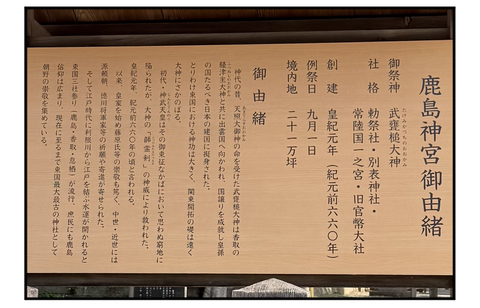 鹿島神宮御由緒
御祭神　武甕槌大神
たけみかづちのおおかみ
社　格　勅祭社・別表神社・
常陸国一之宮・旧官幣大社
創　建　皇紀元年（紀元前六六〇年）
例祭日　九月一日
境内地　二十一万坪
御由緒
神代の昔、天照大御神の命を受けた武甕槌大神は香取の
経津主大神と共に出雲国へ向かわれ、国譲りを成就し皇孫
の国たるべき日本の建国に挺身された。
とりわけ東国における神功は大きく、関東開拓の礎は遠く
大神にさかのぼる。
初代・神武天皇はその御東征なかばにおいて思わぬ窮地に
陥られたが、大神の「韴霊剣」の神威により救われた。
皇紀元年、紀元前六六〇年の頃と言われる。
以来、皇室を始め藤原氏等の崇敬も篤く、中世・近世には
源頼朝、徳川将軍家等の祈願や寄進が寄せられた。
そして江戸時代に利根川から江戸を結ぶ水運が開かれると
東国三社参り（鹿島・香取・息栖）が流行、庶民にも鹿島
信仰は広まり、現在に至るまで東国最大最古の神社として
朝野の崇敬を集めている。